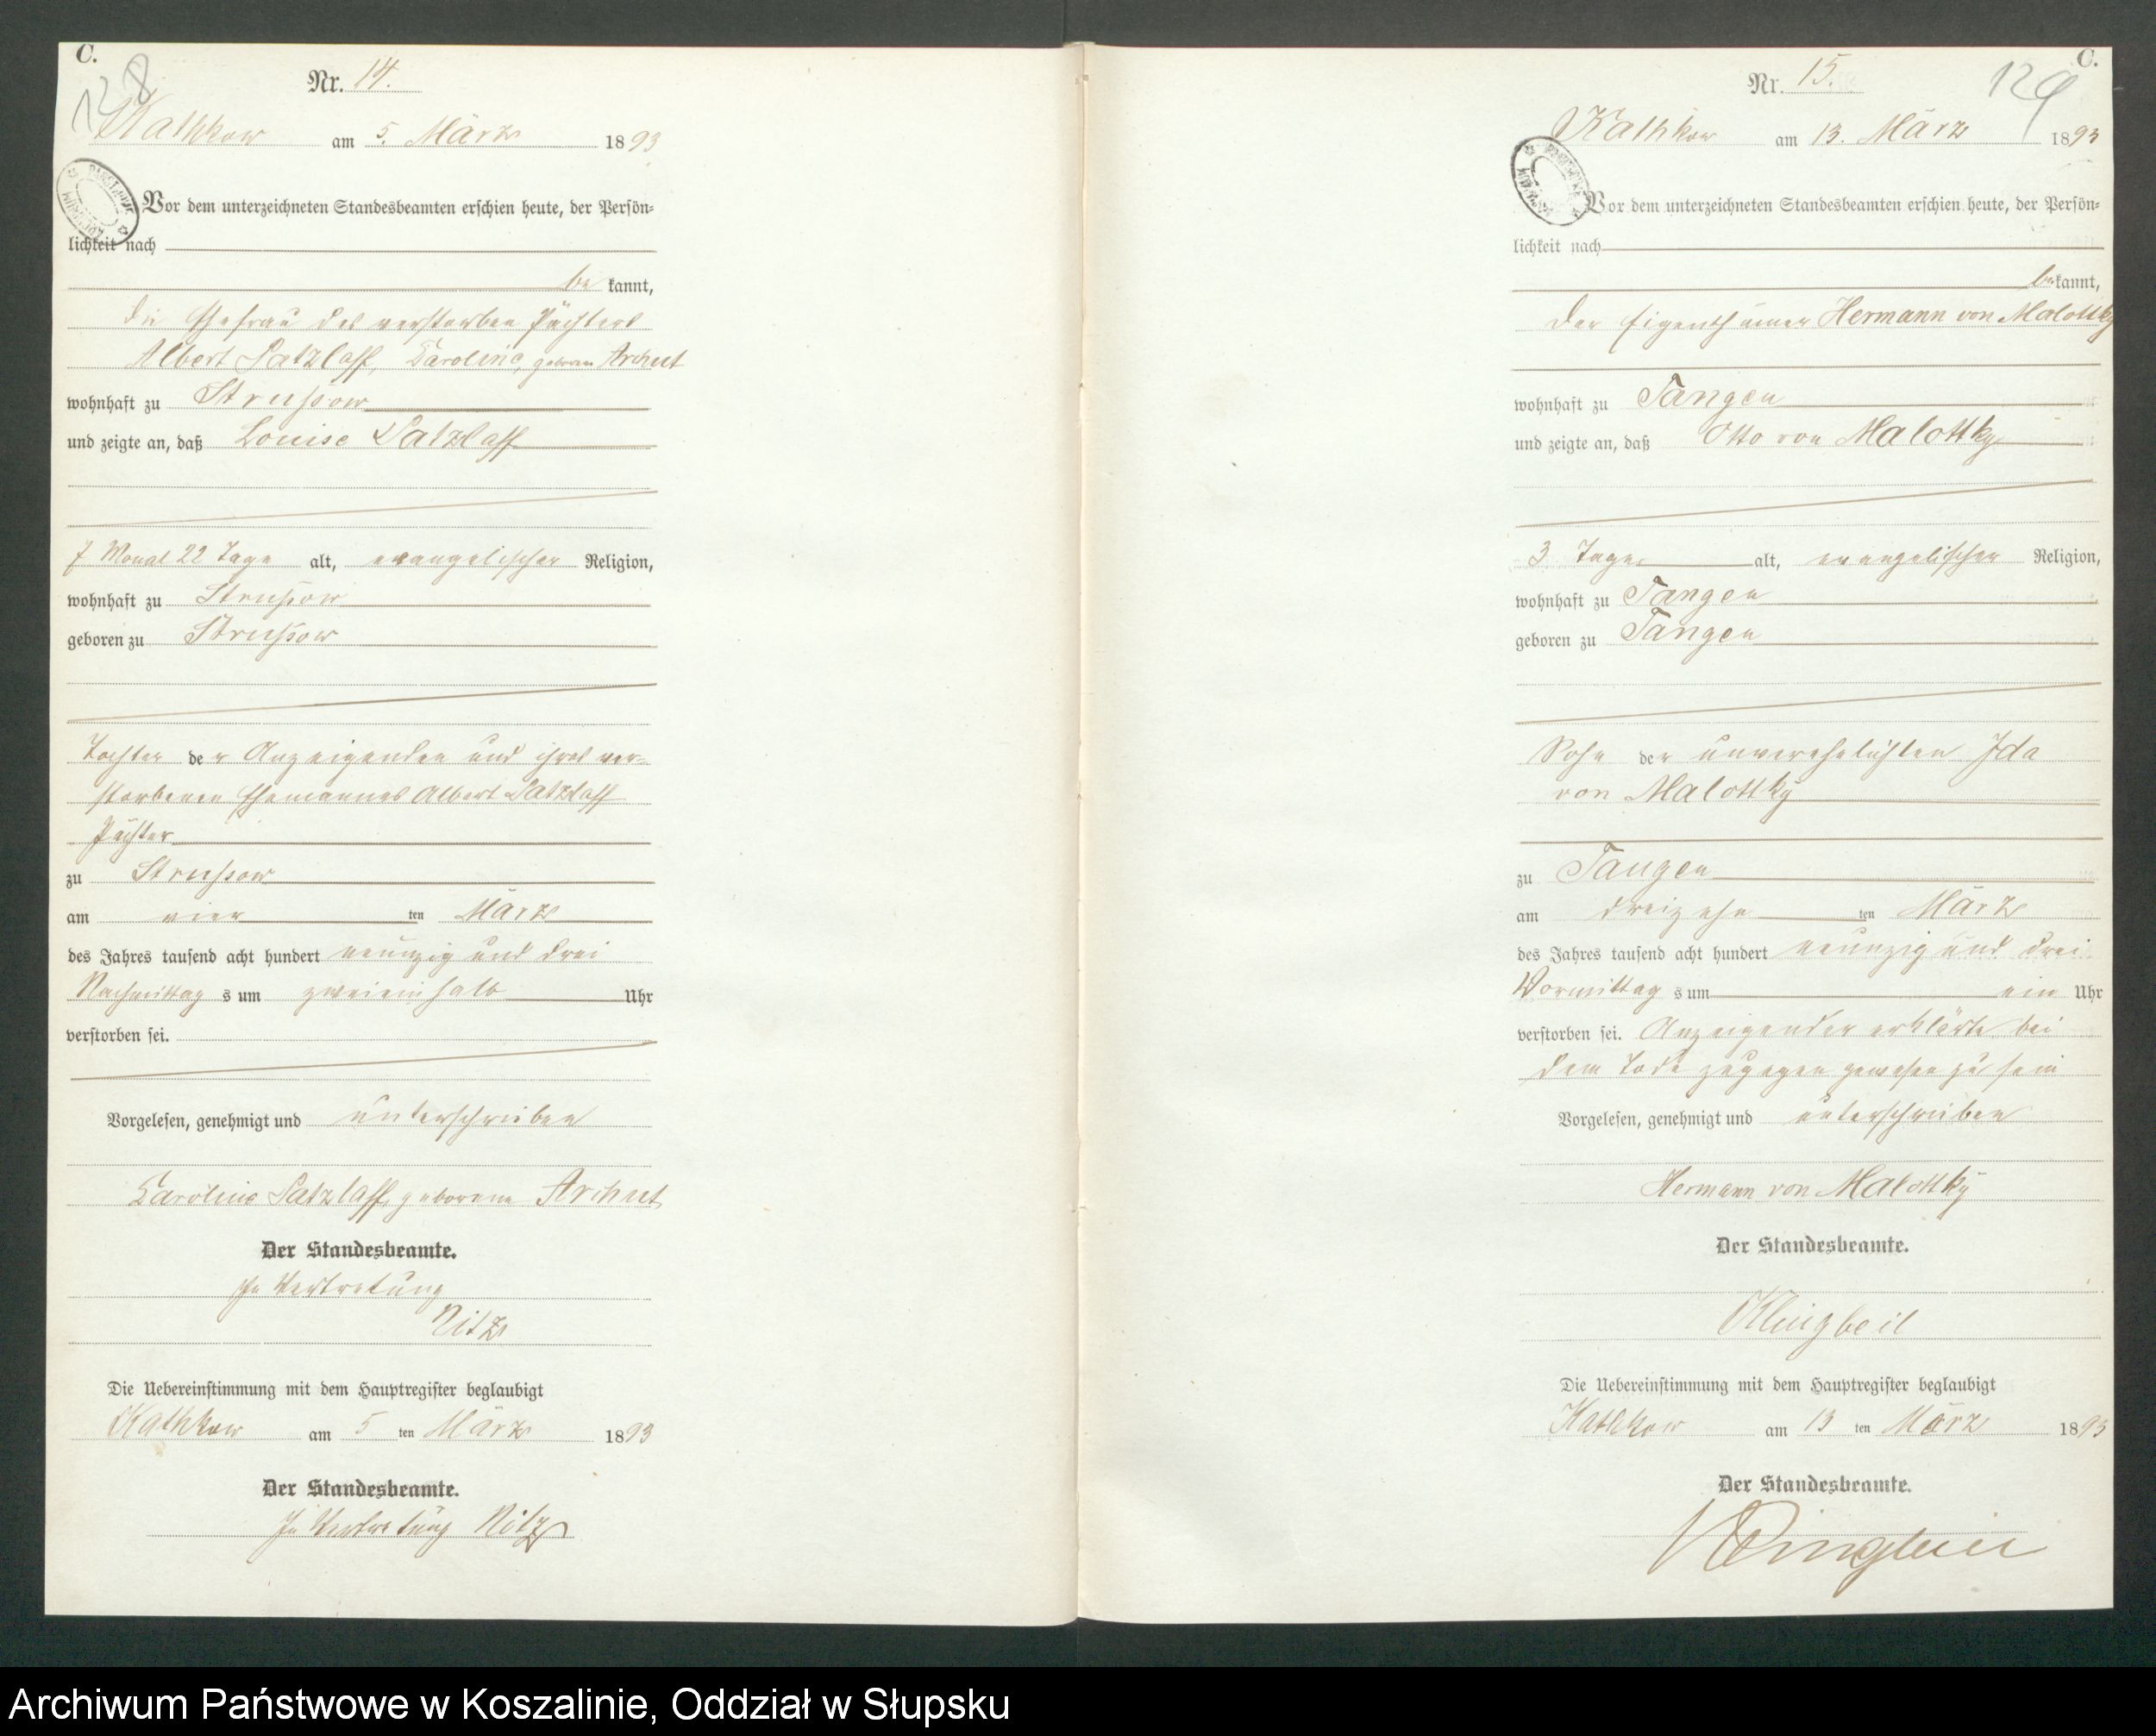 C.
128
Nr. 14.
Kathkow am 5. März 1893
Vor dem unterzeichneten Standesbeamten erschien heute, der Persön-
lichkeit nach
be kannt,
die Ehefrau des verstorben Pächters
Albert Patzlaff, Caroline, geborene Archut
wohnhaft zu Strussow
und zeigte an, daß Louise Patzlaff
7 Monat 22 Tage alt, evangelischer Religion,
wohnhaft zu Strussow
geboren zu Strussow
Tochter der Anzeigenden und ihres ver-
storbenen Ehemannes Albert Patzlaff
Pächter
zu Strussow
am vier ten März
des Jahres tausend acht hundert neunzig und drei
Nachmittag s um zweieinhalb Uhr
verstorben sei.
Vorgelesen, genehmigt und unterschrieben
Caroline Patzlaff, geborene Archut
Der Standesbeamte.
In Vertretung
Nitz
Die Uebereinstimmung mit dem Hauptregister beglaubigt
Kathkow am 5 ten März 1893
Der Standesbeamte.
In Vertretung Nitz
C.
129
Nr. 15.
Kathkow am 13. März 1893
Vor dem unterzeichneten Standesbeamten erschien heute, der Persön-
lichkeit nach
be kannt,
der Eigenthümer Hermann von Malottky
wohnhaft zu Tangen
und zeigte an, daß Otto von Malottky
3 Tage alt, evangelischer Religion,
wohnhaft zu Tangen
geboren zu Tangen
Sohn der unverehelichten Ida
von Malottky
zu Tangen
am dreizehn ten März
des Jahres tausend acht hundert neunzig und drei
Vormittag s um ein Uhr
verstorben sei. Anzeigender erklärte bei
dem Tode zugegen gewesen zu sein
Vorgelesen, genehmigt und unterschrieben
Hermann von Malottky
Der Standesbeamte.
Klingbeil
Die Uebereinstimmung mit dem Hauptregister beglaubigt
Kathkow am 13 ten März 1893
Der Standesbeamte.
Klingbeil
Archiwum Państwowe w Koszalinie, Oddział w Słupsku